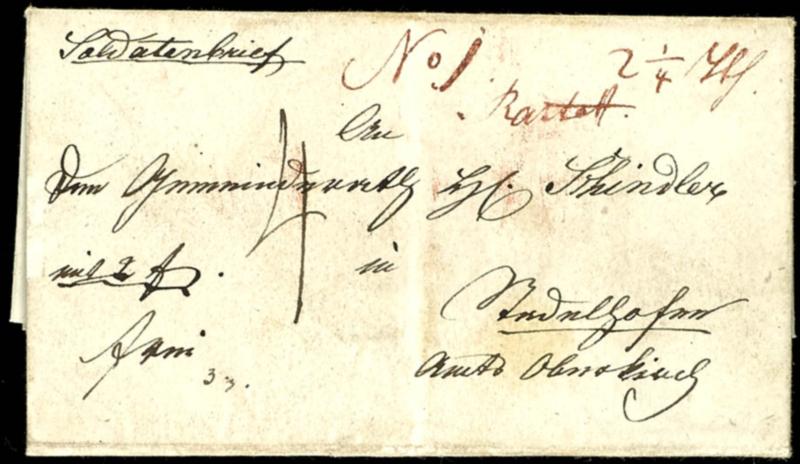 Soldatenbrief
No 1 2 1/4 Lth
Rastatt.
An
Den Gemeinderath H. Schindler
mit 2 f.
in
Stadelhofen
frei
Amts Oberkirch
33.